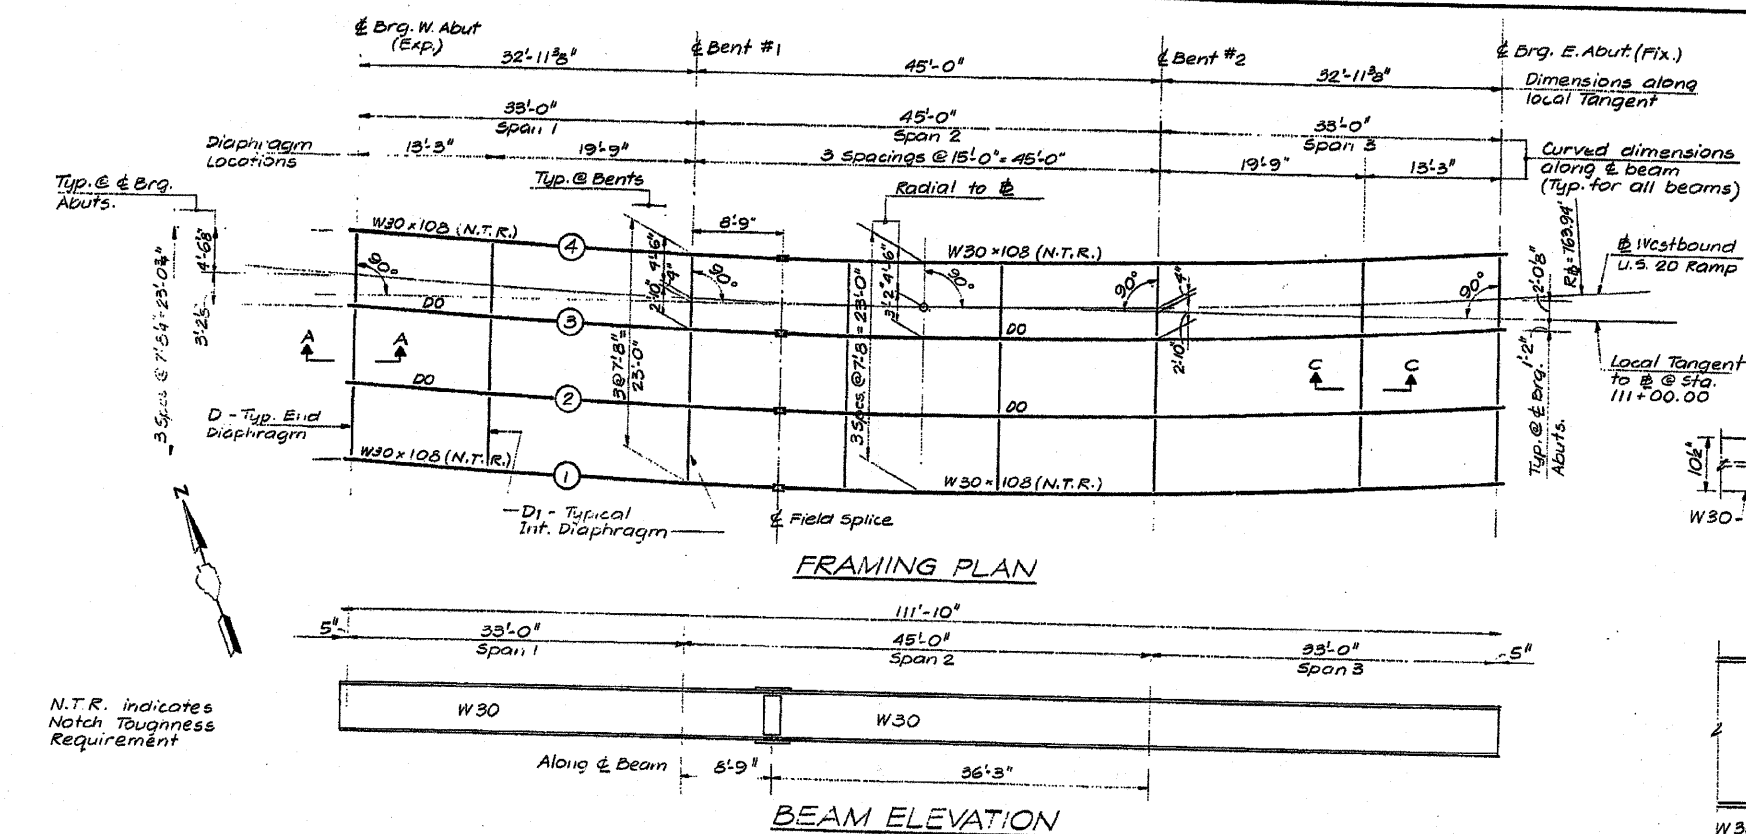 ℄ Brg. W. Abut
(Exp.)
32'-11⅜"
℄ Bent #1
45'-0"
℄ Bent #2
32'-11⅜"
℄ Brg. E. Abut. (Fix.)
Dimensions along
local Tangent
33'-0"
Span 1
45'-0"
Span 2
33'-0"
Span 3
Diaphragm
Locations
13'-3"
19'-9"
3 Spacings @ 15'-0" = 45'-0"
19'-9"
13'-3"
Curved dimensions
along ℄ beam
(Typ. for all beams)
Typ. @ ℄ Brg.
Abuts.
Typ. @ Bents
Radial to ⅊
8'-9"
W30 x 108 (N.T.R.)
4
W30 x 108 (N.T.R.)
⅊ Westbound
U.S. 20 Ramp
90°
90°
90°
90°
90°
4'-6"
4"
2'-10"
4'-6"
3'-2"
4"
2'-10"
DO
3
DO
A
A
C
C
3@7'-8"=
23'-0"
3 Spcs. @ 7'-8" = 23'-0"
1'-2"
Typ. @ ℄ Brg.
Abuts.
Local Tangent
to ⅊ @ Sta.
111+00.00
DO
2
DO
D - Typ. End
Diaphragm
W30 x 108 (N.T.R.)
1
W30 x 108 (N.T.R.)
10½"
W30-
D1 - Typical
Int. Diaphragm
℄ Field Splice
FRAMING PLAN
111'-10"
5"
33'-0"
Span 1
45'-0"
Span 2
33'-0"
Span 3
5"
N.T.R. indicates
Notch Toughness
Requirement
W30
W30
Along ℄ Beam
8'-9"
36'-3"
BEAM ELEVATION